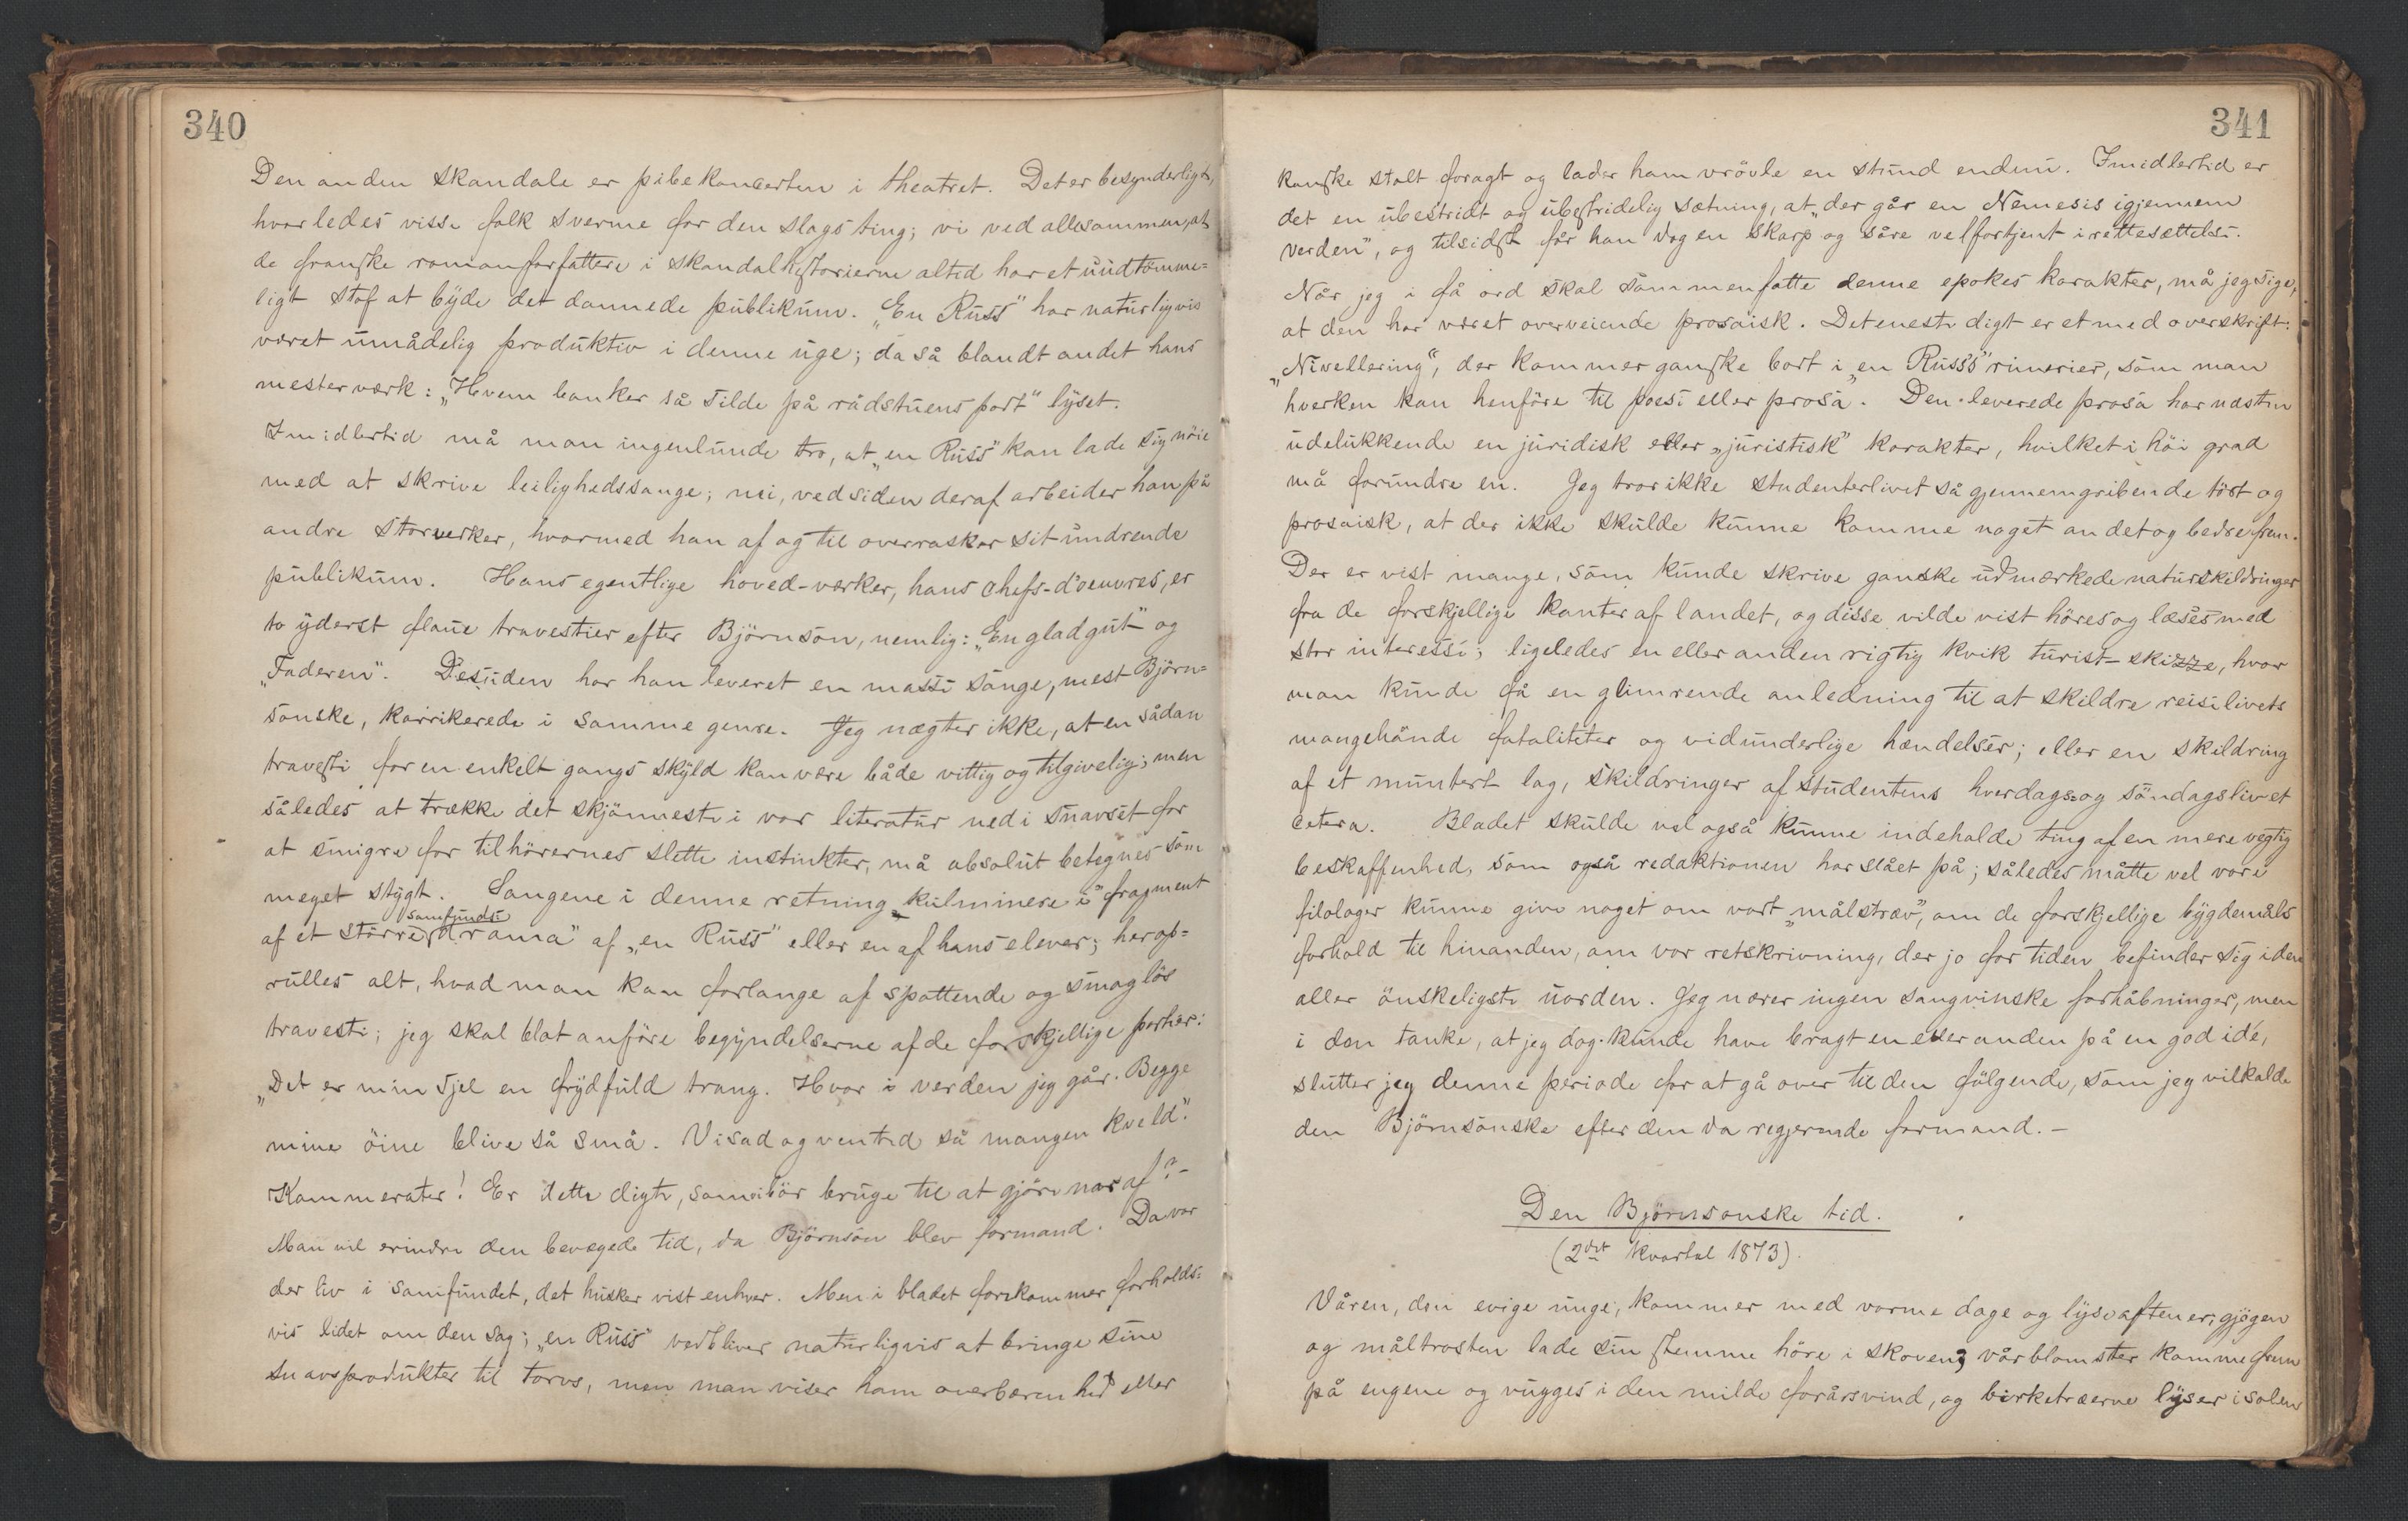 340
Den anden skandale er pibekoncerten i theatret. Det er besynderligt,
hvorledes visse folk sverme for den slags ting; vi ved allesammen, at
de franske romanforfattere i skandalhistorierne altid har et uudtømme=
ligt stof at byde det dannede publikum. „En Russ” har naturligvis
været umådelig produktiv i denne uge; da så blandt andet hans
mesterværk: „Hvem banker så silde på rådstuens port” lyset.
Imidlertid må man ingenlunde tro, at „en Russ” kan lade sig nöie
med at skrive leilighedssange; nei, ved siden deraf arbeider han på
andre storverker, hvormed han af og til overrasker sit undrende
publikum. Hans egentlige hoved-værker, hans chefs-d'oeuvres, er
to yderst flaue travestier efter Björnson, nemlig: „En glad gut” og
„Faderen”. Desuden har han leveret en masse sange, mest Björn=
sonske, karrikerede i samme genre. Jeg nægter ikke, at en sådan
travesti for en enkelt gangs skyld kan være både vittig og tilgivelig; men
således at trække det skjönneste i vor literatur ned i snavset for
at smigre for tilhörernes slette instinkter, må absolut betegnes som
meget stygt. Sangene i denne retning kulminere i „fragment
af et större samfundsdrama” af „en Russ” eller en af hans elever; her op=
rulles alt, hvad man kan forlange af spottende og smaglös
travesti; jeg skal blot anföre begyndelserne af de forskjellige partier:
„Det er min sjel en frydfuld trang. Hvor i verden jeg går. Begge
mine öine blive så små. Vi sad og vented så mangen kveld.”
Kammerater! Er dette digte, som vi bör bruge til at gjöre nar af? –
Man vil erindre den bevægede tid, da Björnson blev formand. Da var
der liv i samfundet, det husker vist enhver. Men i bladet forekommer forholds=
vis lidet om den sag; „en Russ” vedbliver naturligvis at bringe sine
snavsprodukter til torvs, men man viser ham overbærenhed eller
341
kanske stolt foragt og lader ham vrövle en stund endnu. Imidlertid er
det en ubestridt og ubestridelig sætning, at „der går en Nemesis igjennem
verden”, og tilsidst får han dog en skarp og såre velfortjent irettesættelse.
Når jeg i få ord skal sammenfatte denne epokes karakter, må jeg sige,
at den har været overveiende prosaisk. Det eneste digt er et med overskrift:
„Nivellering”, der kommer ganske bort i „en Russ's” rimerier, som man
hverken kan henföre til poesi eller prosa. Den leverede prosa har næsten
udelukkende en juridisk eller „juristisk” karakter, hvilket i höi grad
må forundre en. Jeg tror ikke studenterlivet så gjennemgribende tört og
prosaisk, at der ikke skulde kunne komme noget andet og bedre frem.
Der er vist mange, som kunde skrive ganske udmærkede naturskildringer
fra de forskjellige kanter af landet, og disse vilde vist höres og læses med
stor interesse; ligeledes en eller anden rigtig kvik turist-skizze, hvor
man kunde få en glimrende anledning til at skildre reiselivets
mangehånde fataliteter og vidunderlige hændelser; eller en skildring
af et muntert lag, skildringer af studentens hverdags= og söndagsliv et
cetera. Bladet skulde vel også kunne indeholde ting af en mere vegtig
beskaffenhed, som også redaktionen har slået på; således måtte vel vore
filologer kunne give noget om vort „målstræv”, om de forskjellige bygdemåls
forhold til hinanden, om vor retskrivning, der jo for tiden befinder sig i den
aller önskeligste uorden. Jeg nærer ingen sangvinske forhåbninger, men
i den tanke, at jeg dog kunde have bragt en eller anden på en god ide,
slutter jeg denne periode for at gå over til den fölgende, som jeg vil kalde
den Björnsonske efter den da regjerende formand. –
Den Björnsonske tid.
(2det kvartal 1873).
Våren, den evige unge, kommer med varme dage og lyse aftener; gjögen
og måltrosten lade sin stemme höre i skoven; vårblomster komme frem
på engene og vugges i den milde forårsvind, og birketræerne lyser i solen